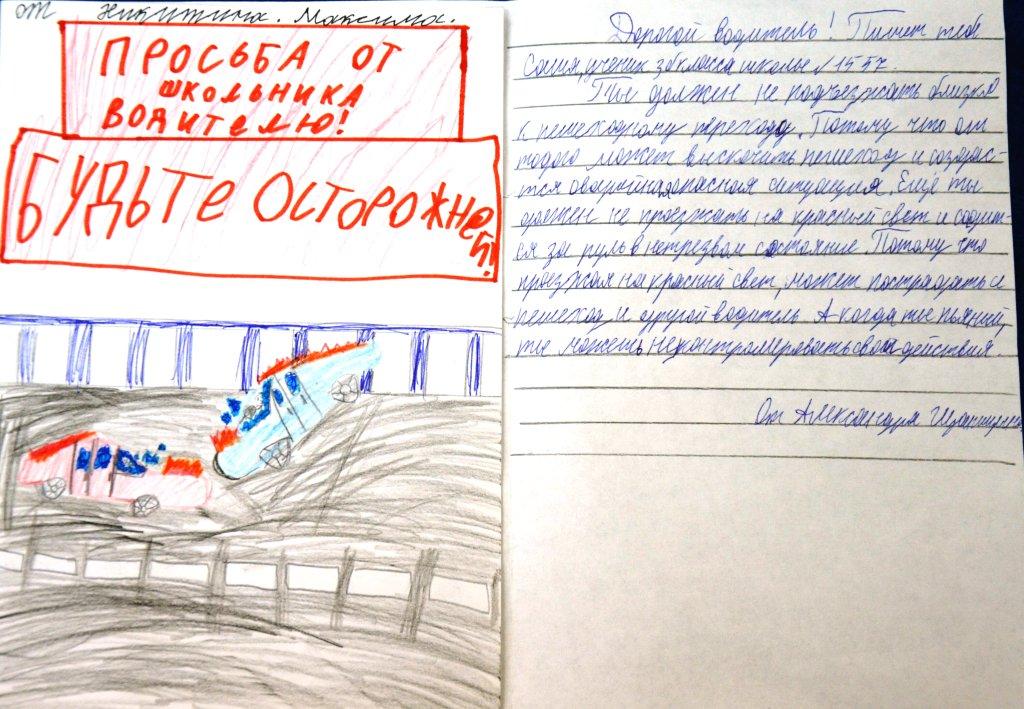 от Никитина. Максима.
ПРОСЬБА ОТ
ШКОЛЬНИКА
ВОДИТЕЛЮ!
БУДЬТЕ ОСТОРОЖНЕЙ!
Дорогой водитель! Пишет тебе
Саша, ученик 3б класса школы №1557.
Ты должен не подъезжать близко
к пешеходному переходу. Потому что от
тодого может выскочить пешеход и создаё-
тся оварийная опасная ситуация. Ещё ты
должен не проезжать на красный свет и садит-
ся за руль в нетрезвом состояние. Потому что
проезжая на красный свет, может пострадать и
пешеход и другой водитель. А когда ты пьяний,
ты можешь неконтролеровать свои действия.
От Александра